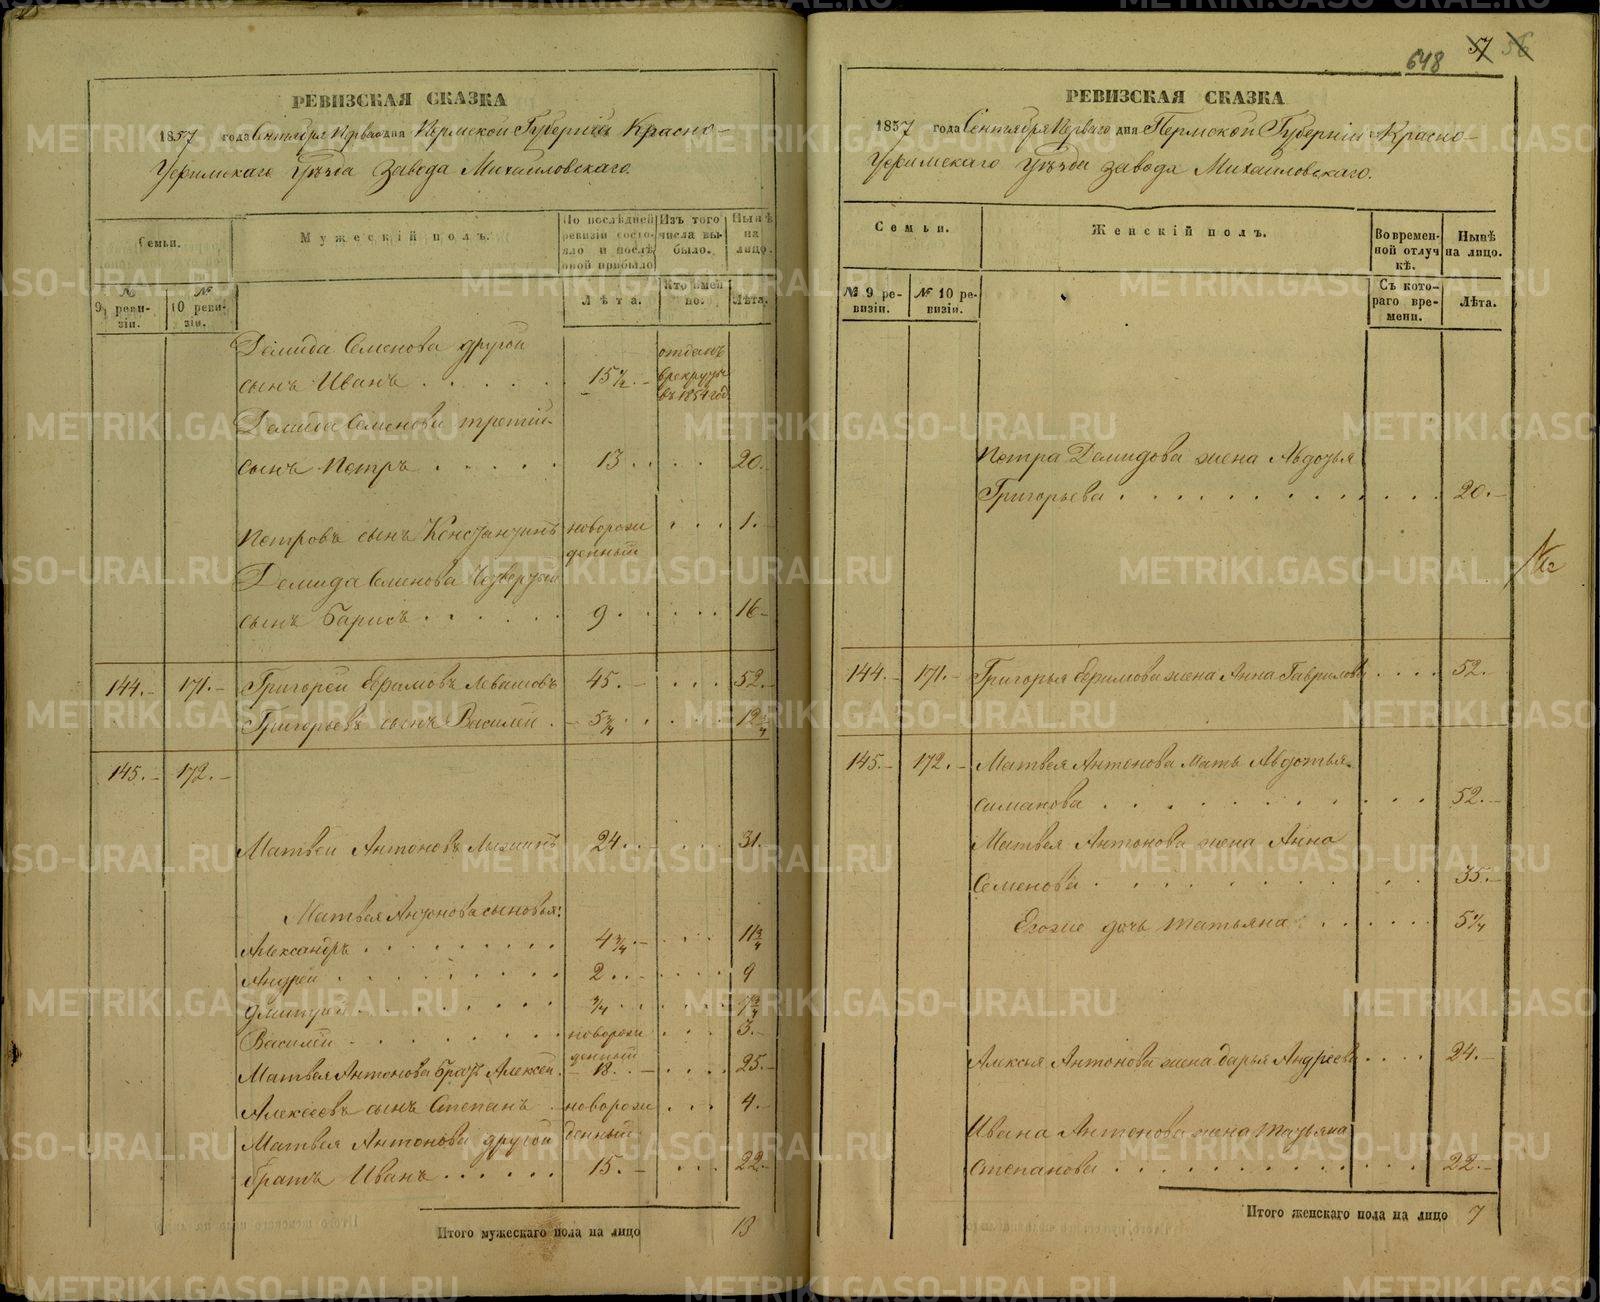 РЕВИЗСКАЯ СКАЗКА
1857 года Сентября Перваго дня Пермской Губерніи Красно-
Уфимскаго Уѣзда Завода Михайловскаго.
Семьи.
Мужескій полъ.
По послѣдней ревизіи состояло и послѣ оной прибыло
Изъ того числа выбыло.
Нынѣ на лицо.
№ 9 ревизіи.
№ 10 ревизіи.
Лѣта.
Кто имен но.
Лѣта.
Демида Семенова другой
сынъ Иванъ . . . . . 15½. отданъ в рекруты въ 1854 год
Демида Семенова третій
сынъ Петръ . . . . . 13 . . . . 20.
Петровъ сынъ Константинъ новорожденный . . . 1.-
Демида Семенова Четвертый
сынъ Барисъ . . . . . . 9 . . . . . 16-
144.- 171.- Григорей Ефимовъ Левашовъ 45.- . . . 52.-
Григорьевъ сынъ Василей . - 5¾ . . . . . 12¾
145.- 172.-
Матвей Антоновъ 24. . - . . . 31.
Матвея Антонова сыновья:
Александръ . . . . . . . . . 4¾.- . . . 11¾
Андрей . . . . . . . . . 2 . . - . . . . 9
Дмитрей . . . . . . . . ¾ . . . . . . 7¾
Василей . . . . . . . новорожденный . . . 3.-
Матвея Антонова братъ Алексей. - 18. . - . . . . 25.-
Алексеевъ сынъ Степанъ - новорожденный . . . 4.-
Матвея Антонова другой
братъ Иванъ . . . . . . 15.- . . . 22.-
Итого мужескаго пола на лицо 13
648 57 56
РЕВИЗСКАЯ СКАЗКА
1857 года Сентября Перваго дня Пермской Губерніи Красно-
Уфимскаго Уѣзда завода Михайловскаго.
Семьи.
Женскій полъ.
Во временной отлучкѣ.
Нынѣ на лицо.
№ 9 ревизіи.
№ 10 ревизіи.
Съ котораго времени.
Лѣта.
Петра Демидова жена Авдотья
Григорьева . . . . . . . . . . . . . 20.-
144.- 171.- Григорья Ефимова жена Анна Гаврилова . . . . 52.
145.- 172.- Матвея Антонова Мать Авдотья
Симанова . . . . . . . . . . . 52.-
Матвея Антонова жена Анна
Семенова . . . . . . . . . 35.-
Егожие дочь Татьяна . . . . . . 5¼
Алексея Антонова жена дарья Андреева . . . . 24.-
Ивана Антонова жена татьяна
Степанова . . . . . . . . . . . . . 22.-
Итого женскаго пола на лицо 7
METRIKI.GASO-URAL.RU